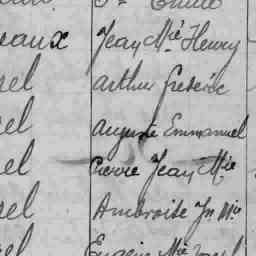 eaux Jean Mie Henry
rel Arthur Frederic
el Auguste Emmanuel
el Pierre Jean Mie
rel Ambroise Jn Mie
el Eugène Mie